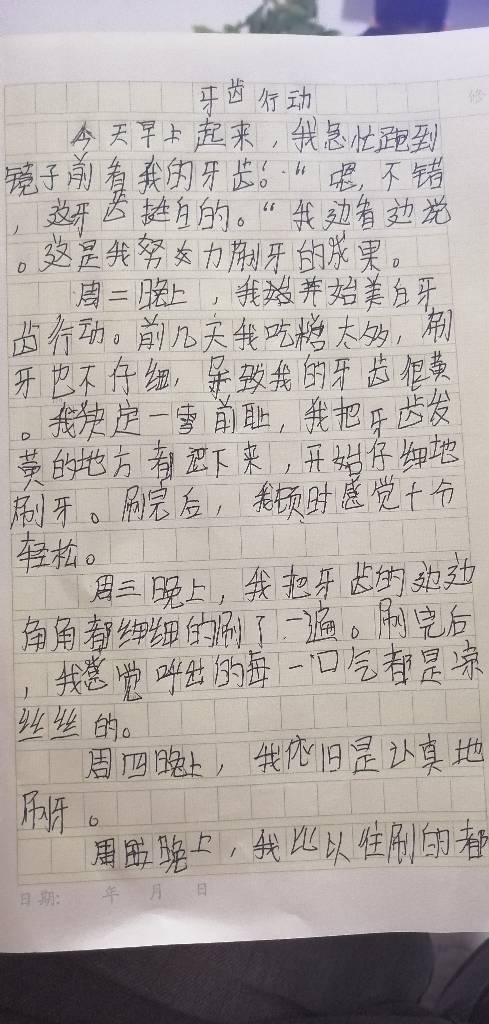 牙齿行动
今天早上起来，我急忙跑到
镜子前看我的牙齿：“嗯，不错
，这牙齿挺白的。“我边看边说
。这是我努力刷牙的成果。
周二晚上，我开始美白牙
齿行动。前几天我吃糖太多，刷
牙也不仔细，导致我的牙齿很黄
。我决定一雪前耻，我把牙齿发
黄的地方都记下来，开始仔细地
刷牙。刷完后，我顿时感觉十分
轻松。
周三晚上，我把牙齿的边边
角角都细细的刷了一遍。刷完后
，我感觉呼出的每一口气都是凉
丝丝的。
周四晚上，我依旧是认真地
刷牙。
周五晚上，我比以往刷的都
日期： 年 月 日